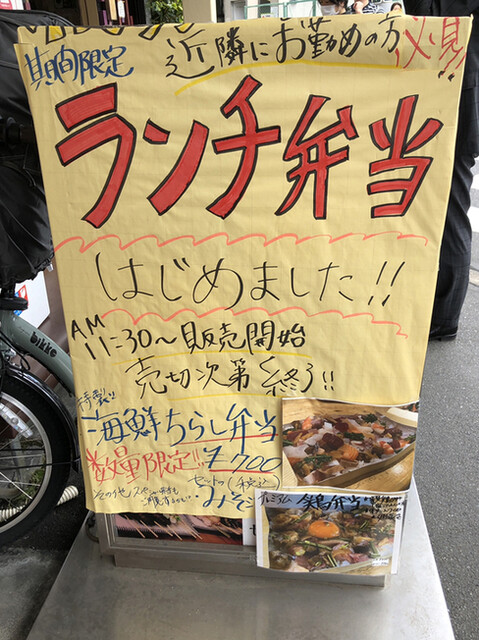 期間限定
近隣にお勤めの方
必見!!
ランチ弁当
はじめました!!
AM
11:30〜販売開始
売切次第終了!!
特製!!
海鮮ちらし弁当
数量限定!! ¥700
セット(税込)
みそ
プレミアム
bikke